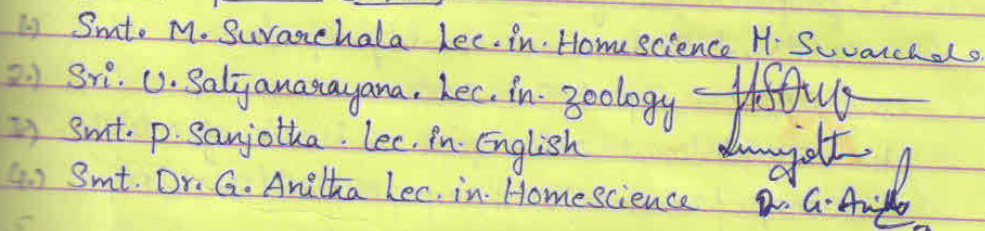 1.) Smt. M. Suvarchala Lec. in. Home science M. Suvarchala.
2.) Sri. U. Satyanarayana. Lec. in. Zoology
3) Smt. P. Sanjotha. Lec. in. English Sanjotha
4.) Smt. Dr. G. Anitha Lec. in. Homescience Dr. G. Anitha